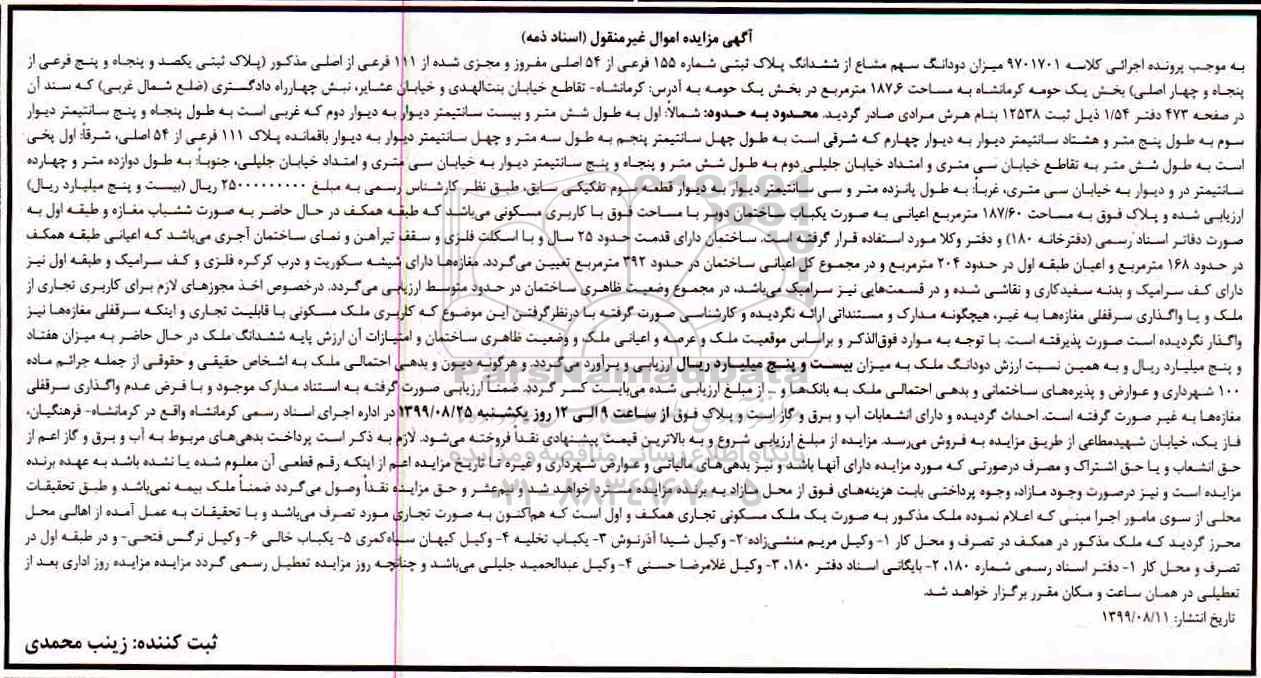 آگهی مزایده اموال غیرمنقول (اسناد ذمه)
به موجب پرونده اجرائی کلاسه ۹۷۰۱۷۰۱ میزان دودانگ سهم مشاع از ششدانگ پلاک ثبتی شماره ۱۵۵ فرعی از ۵۴ اصلی مفروز و مجزی شده از ۱۱۱ فرعی از اصلی مذکور (پلاک ثبتی یکصد و پنجاه و پنج فرعی از
پنجاه و چهار اصلی) بخش یک حومه کرمانشاه به مساحت ۱۸۷,۶ مترمربع در بخش یک حومه به آدرس: کرمانشاه- تقاطع خیابان بنت‌الهدی و خیابان عشایر، نبش چهارراه دادگستری (ضلع شمال غربی) که سند آن
در صفحه ۴۷۳ دفتر ۱/۵۴ ذیل ثبت ۱۲۵۳۸ بنام هرش مرادی صادر گردید. محدود به حدود: شمالاً: اول به طول شش متر و بیست سانتیمتر دیوار به دیوار دوم که غربی است به طول پنجاه و پنج سانتیمتر دیوار
سوم به طول پنج متر و هشتاد سانتیمتر دیوار به دیوار چهارم که شرقی است به طول چهل سانتیمتر پنجم به طول سه متر و چهل سانتیمتر دیوار به دیوار باقمانده پلاک ۱۱۱ فرعی از ۵۴ اصلی، شرقاً: اول پخی
است به طول شش متر به تقاطع خیابان سی متری و امتداد خیابان جلیلی دوم به طول شش متر و پنجاه و پنج سانتیمتر دیوار به خیابان سی متری و امتداد خیابان جلیلی، جنوباً: به طول دوازده متر و چهارده
سانتیمتر در و دیوار به خیابان سی متری، غرباً: به طول پانزده متر و سی سانتیمتر دیوار به دیوار قطعه سوم تفکیکی سابق، طبق نظر کارشناس رسمی به مبلغ ۲۵۰۰۰۰۰۰۰۰۰ ریال (بیست و پنج میلیارد ریال)
ارزیابی شده و پلاک فوق به مساحت ۱۸۷/۶۰ مترمربع اعیانی به صورت یکباب ساختمان دوبر با مساحت فوق با کاربری مسکونی می‌باشد که طبقه همکف در حال حاضر به صورت ششباب مغازه و طبقه اول به
صورت دفاتر اسناد رسمی (دفترخانه ۱۸۰) و دفتر وکلا مورد استفاده قرار گرفته است. ساختمان دارای قدمت حدود ۲۵ سال و با اسکلت فلزی و سقف تیرآهن و نمای ساختمان آجری می‌باشد که اعیانی طبقه همکف
در حدود ۱۶۸ مترمربع و اعیان طبقه اول در حدود ۲۰۴ مترمربع و در مجموع کل اعیانی ساختمان در حدود ۳۹۲ مترمربع تعیین می‌گردد. مغازه‌ها دارای شیشه سکوریت و درب کرکره فلزی و کف سرامیک و طبقه اول نیز
دارای کف سرامیک و بدنه سفیدکاری و نقاشی شده و در قسمت‌هایی نیز سرامیک می‌باشد، در مجموع وضعیت ظاهری ساختمان در حدود متوسط ارزیابی می‌گردد. درخصوص اخذ مجوزهای لازم برای کاربری تجاری از
ملک و یا واگذاری سرقفلی مغازه‌ها به غیر، هیچگونه مدارک و مستنداتی ارائه نگردیده و کارشناسی صورت گرفته با درنظرگرفتن این موضوع که کاربری ملک مسکونی با قابلیت تجاری و اینکه سرقفلی مغازه‌ها نیز
واگذار نگردیده است صورت پذیرفته است. با توجه به موارد فوق‌الذکر و براساس موقعیت ملک و عرصه و اعیانی ملک و وضعیت ظاهری ساختمان و امتیازات آن ارزش پایه ششدانگ ملک در حال حاضر به میزان هفتاد
و پنج میلیارد ریال و به همین نسبت ارزش دودانگ ملک به میزان بیست و پنج میلیارد ریال ارزیابی و برآورد می‌گردد و هرگونه دیون و بدهی احتمالی ملک به اشخاص حقیقی و حقوقی از جمله جرائم ماده
۱۰۰ شهرداری و عوارض و پذیره‌های ساختمانی و بدهی احتمالی ملک به بانک‌ها و ... از مبلغ ارزیابی شده می‌بایست کسر گردد. ضمناً ارزیابی صورت گرفته به استناد مدارک موجود و با فرض عدم واگذاری سرقفلی
مغازه‌ها به غیر صورت گرفته است. احداث گردیده و دارای انشعابات آب و برق و گاز است و پلاک فوق از ساعت ۹ الی ۱۲ روز یکشنبه ۱۳۹۹/۰۸/۲۵ در اداره اجرای اسناد رسمی کرمانشاه واقع در کرمانشاه- فرهنگیان،
فاز یک، خیابان شهیدمطاعی از طریق مزایده به فروش می‌رسد. مزایده از مبلغ ارزیابی شروع و به بالاترین قیمت پیشنهادی نقداً فروخته می‌شود. لازم به ذکر است پرداخت بدهی‌های مربوط به آب و برق و گاز اعم از
حق انشعاب و یا حق اشتراک و مصرف درصورتی که مورد مزایده دارای آنها باشد و نیز بدهی‌های مالیاتی و عوارض شهرداری و غیره تا تاریخ مزایده اعم از اینکه رقم قطعی آن معلوم شده یا نشده باشد به عهده برنده
مزایده است و نیز درصورت وجود مازاد، وجوه پرداختی بابت هزینه‌های فوق از محل مازاد به برنده مزایده مسترد خواهند شد و نیم‌عشر و حق مزایده نقداً وصول می‌گردد ضمناً ملک بیمه نمی‌باشد و طبق تحقیقات
محلی از سوی مامور اجرا مبنی که اعلام نموده ملک مذکور به صورت یک ملک مسکونی تجاری همکف و اول است که هم‌اکنون به صورت تجاری مورد تصرف می‌باشد و با تحقیقات به عمل آمده از اهالی محل
محرز گردید که ملک مذکور در همکف در تصرف و محل کار ۱- وکیل مریم منشی‌زاده ۲- وکیل شیدا آذرنوش ۳- یکباب تخلیه ۴- وکیل کیهان سیاه‌کمری ۵- یکباب خالی ۶- وکیل نرگس فتحی- و در طبقه اول در
تصرف و محل کار ۱- دفتر اسناد رسمی شماره ۱۸۰، ۲- بایگانی اسناد دفتر ۱۸۰، ۳- وکیل غلامرضا حسنی ۴- وکیل عبدالحمید جلیلی می‌باشد و چنانچه روز مزایده تعطیل رسمی گردد مزایده روز اداری بعد از
تعطیلی در همان ساعت و مکان مقرر برگزار خواهد شد.
تاریخ انتشار: ۱۳۹۹/۰۸/۱۱
ثبت کننده: زینب محمدی
ParsNamaddata
پایگاه اطلاع رسانی مناقصه و مزایده
۰۲۱-۸۸۳۴۹۶۷۰-۵